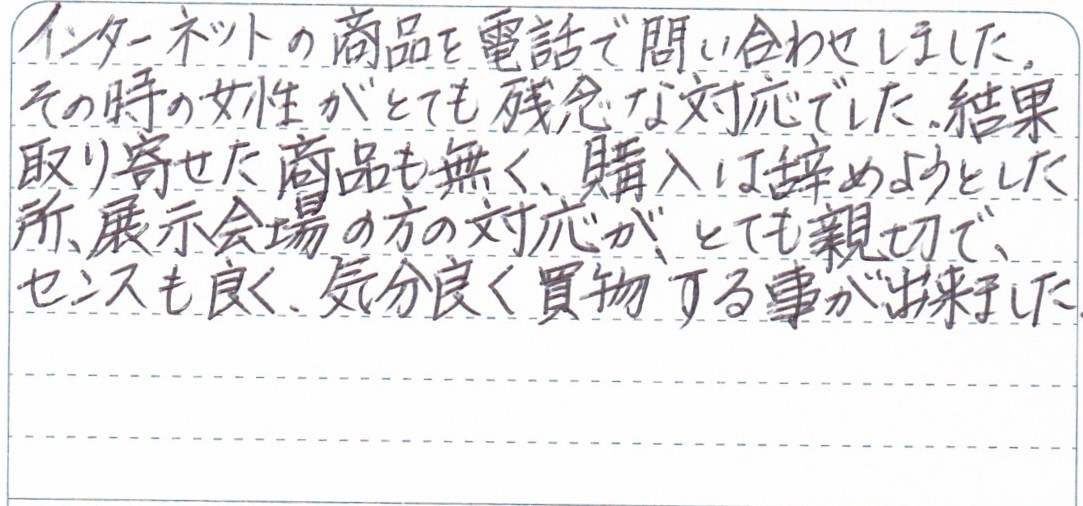 インターネットの商品を電話で問い合わせしました。
その時の女性がとても残念な対応でした。結果
取り寄せた商品も無く、購入は辞めようとした
所、展示会場の方の対応が、とても親切で、
センスも良く、気分良く買物する事が出来ました。